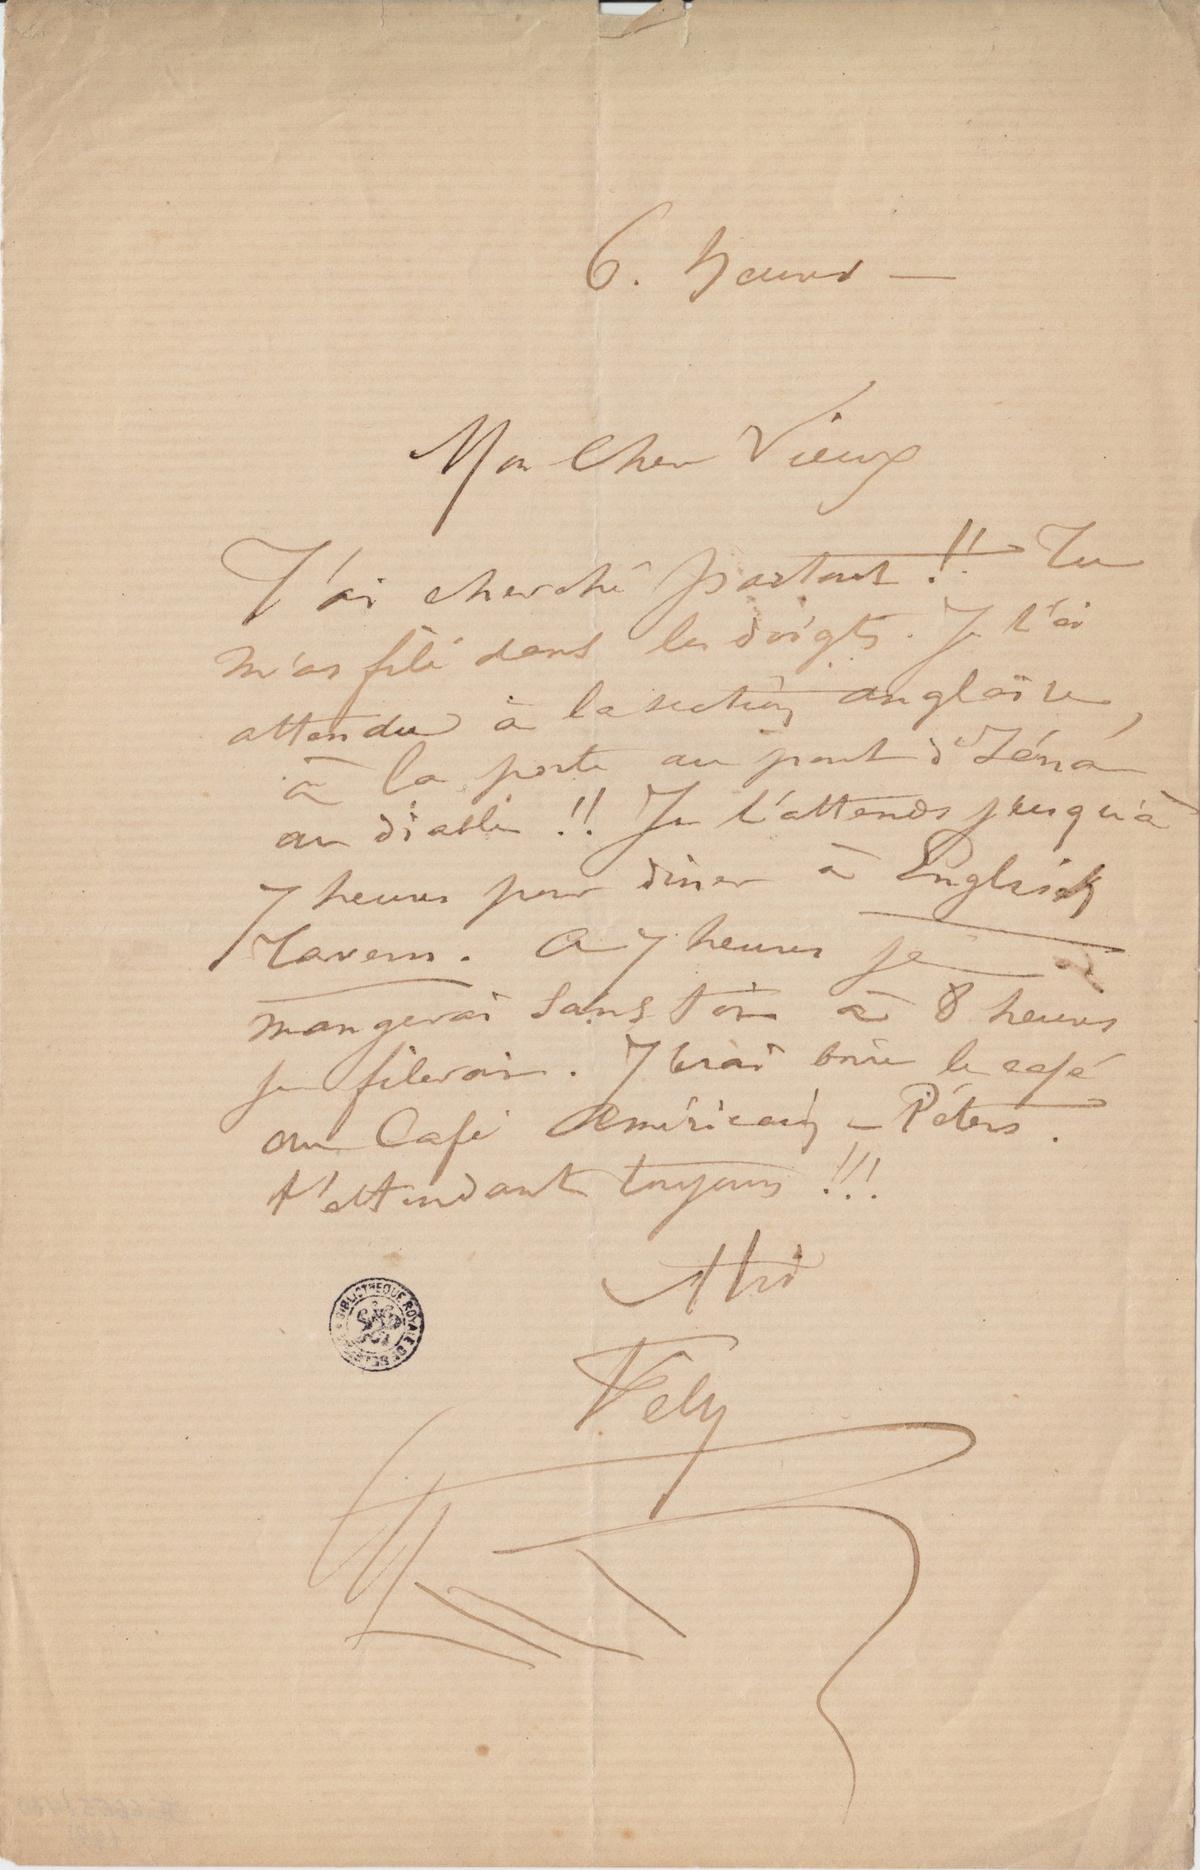 6. heures —
Mon Cher Vieux
J'ai cherché partout !! Tu
m'as filé dans les doigts. Je t'ai
attendu à la section anglaise,
à la porte au pont d'Iéna
au diable !! Je t'attends jusqu'à
7 heures pour diner à English
Tavern. A 7 heures je
mangerai sans toi à 8 heures
je filerai. J'irai boire le café
au Café Américain – Péters.
t'attendant toujours !!!
Fély
BIBLIOTHEQUE ROYALE DE BELGIQUE